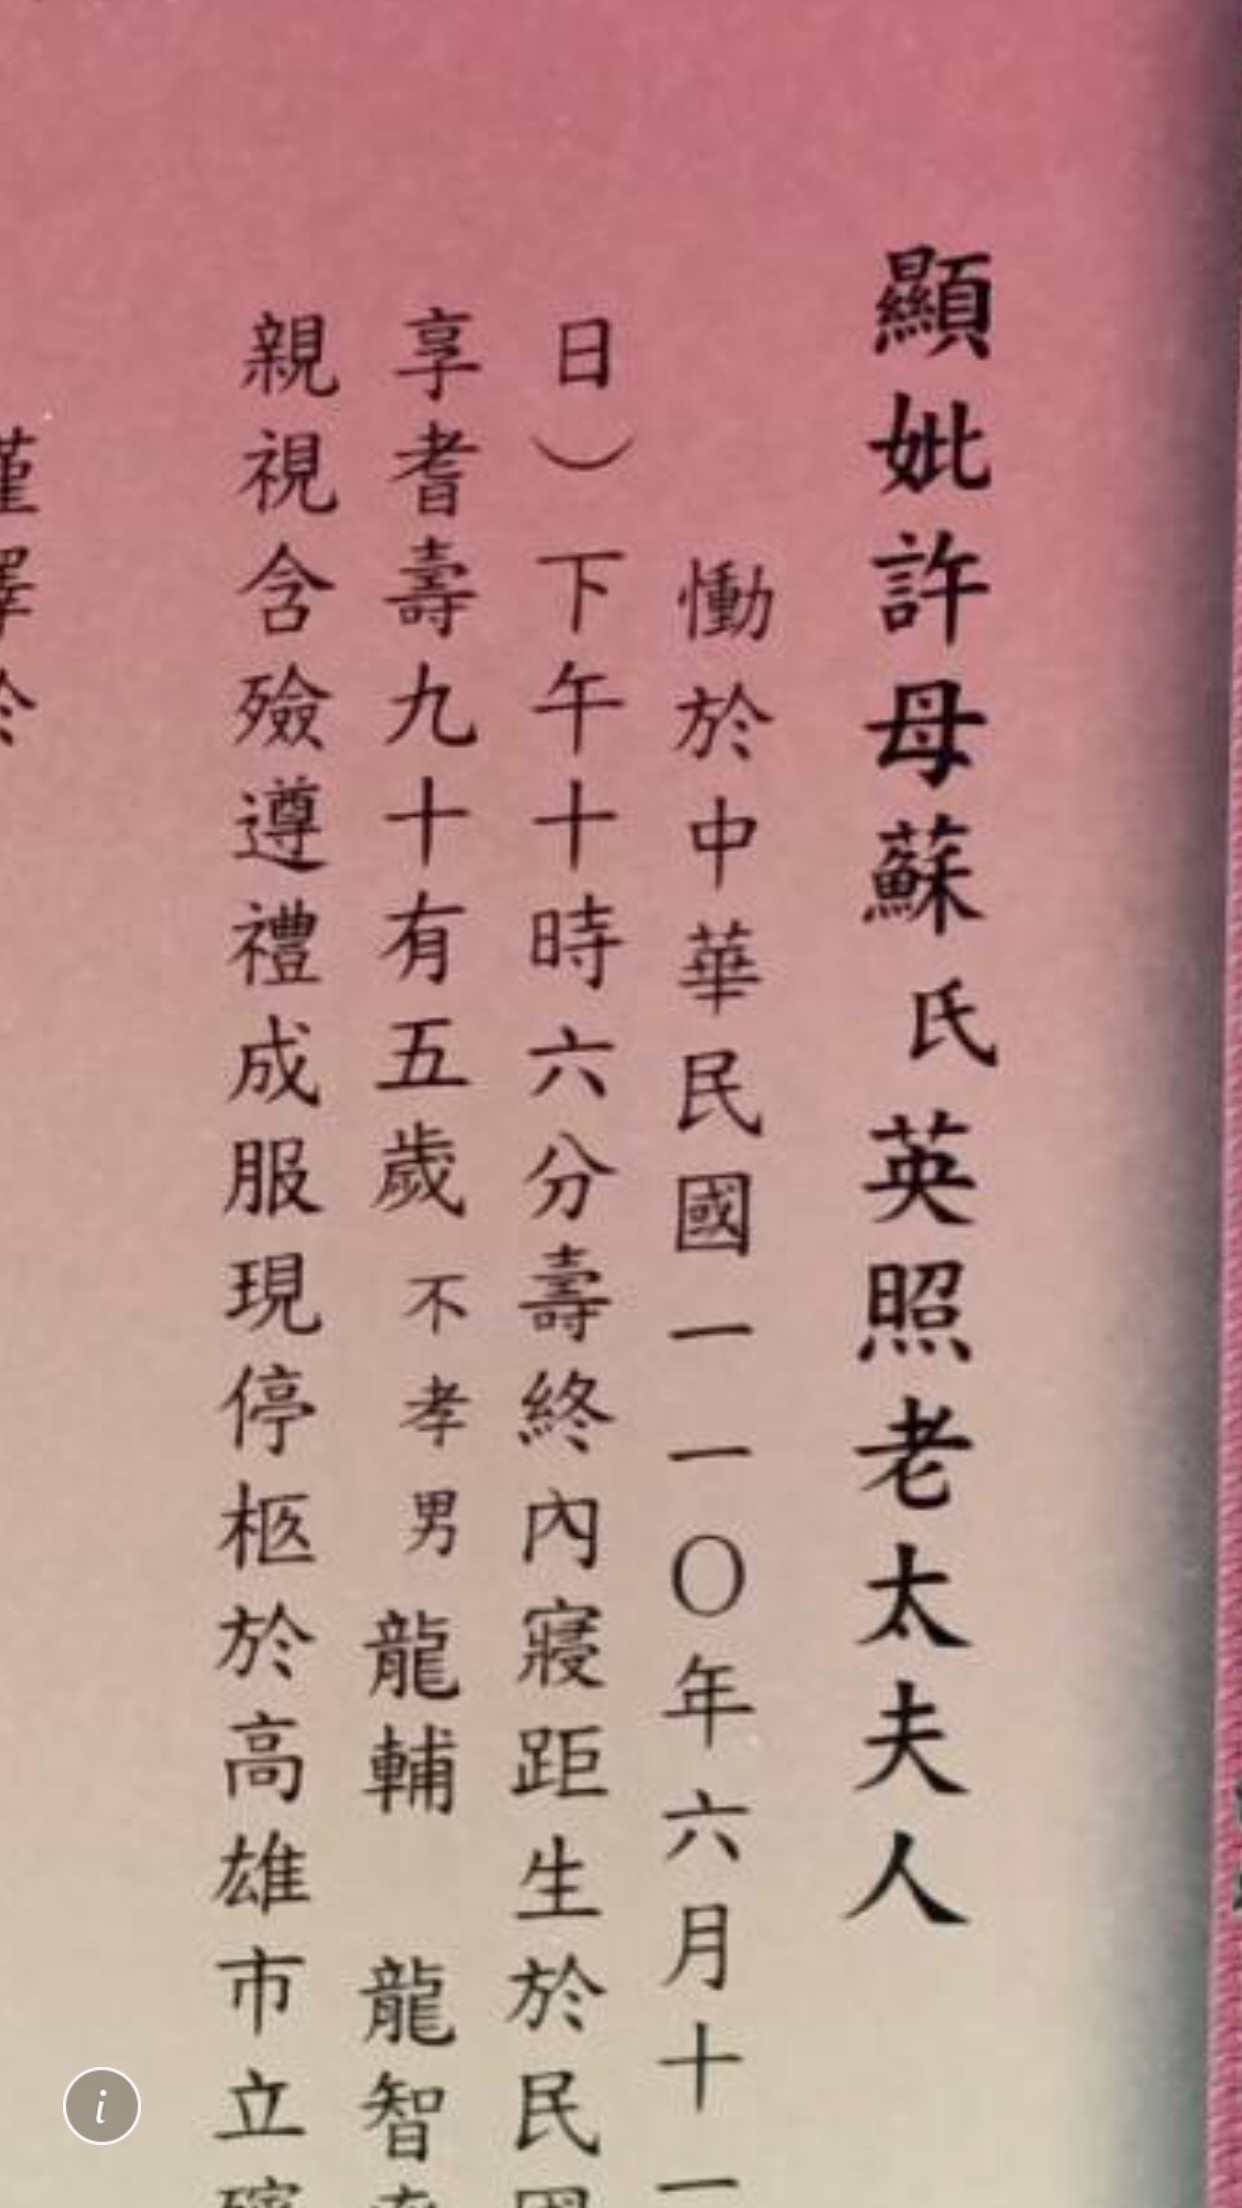 顯妣許母蘇氏英照老太夫人
慟於中華民國一一〇年六月十一
日）下午十時六分壽終內寢距生於民國
享耆壽九十有五歲不孝男龍輔 龍智
親視含殮遵禮成服現停柩於高雄市立殯
謹擇於